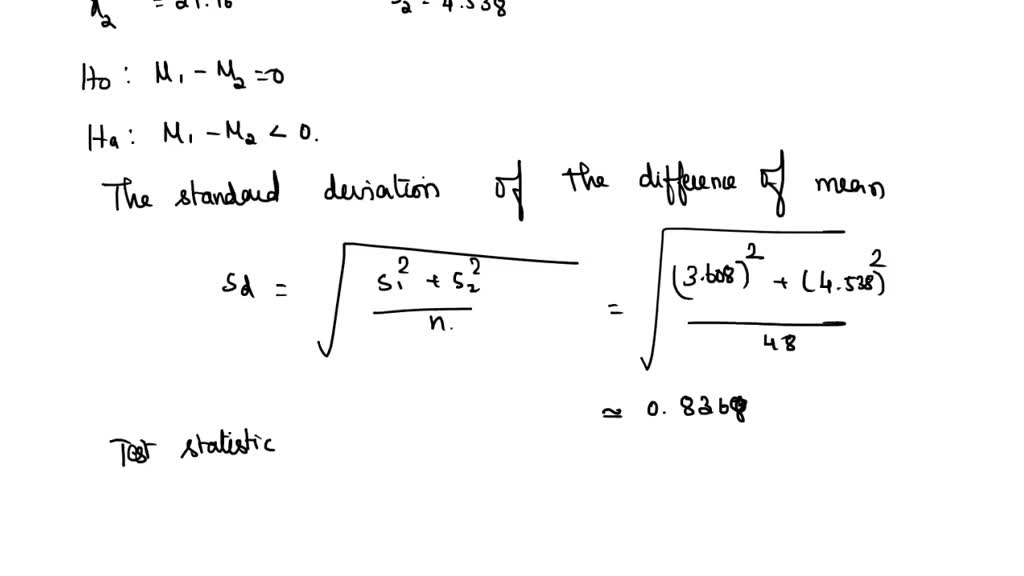 2 = 21.16 2 = 4.538
H0 : M1 - M2 = 0
Ha : M1 - M2 < 0.
The standard deviation of the difference of mean
Sd = √((S1² + S2²)/n.) = √(((3.608)² + (4.538)²)/48)
≃ 0.836
Test statistic